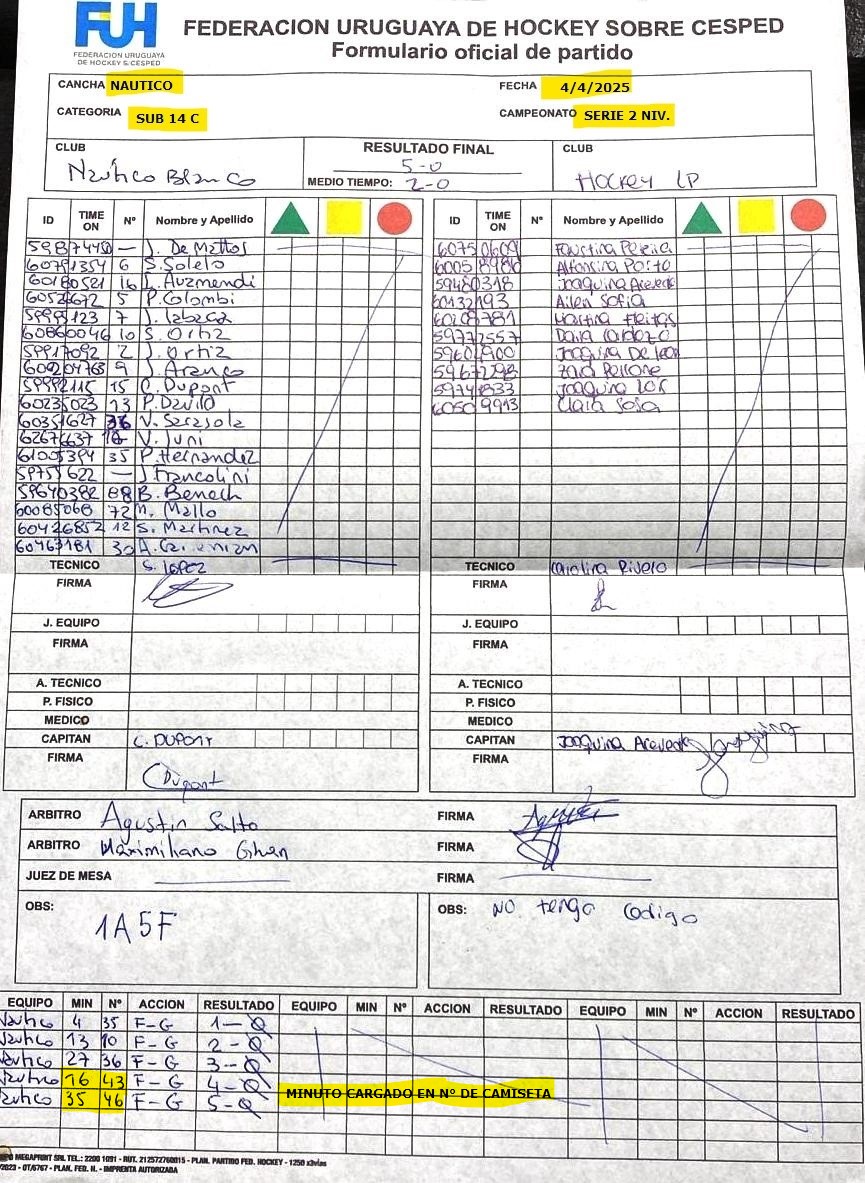 FUH
FEDERACION URUGUAYA
DE HOCKEY S. CESPED
FEDERACION URUGUAYA DE HOCKEY SOBRE CESPED
Formulario oficial de partido
CANCHA NAUTICO FECHA 4/4/2025
CATEGORIA SUB 14 C CAMPEONATO SERIE 2 NIV.
CLUB RESULTADO FINAL CLUB
Naútico Blanco 5-0 Hockey LP
MEDIO TIEMPO: 2-0
ID TIME ON Nº Nombre y Apellido ID TIME ON Nº Nombre y Apellido
59874450 — J. De Mattos 60750609 Faustina Pereira
60791354 6 S. Sotelo 60058986 Alfonsina Porto
60180521 16 L. Auzmendi 59480318 Joaquina Acevedo
5 P. Colombi 60132193 Ailen Sofia
59995123 7 60208781 Martina Fleitas
60860046 10 S. Ortiz 59772557 Daira Cardozo
59917092 2 J. Ortiz 59604900 Joaquina De Leon
600204763 9 J. Aranco 59672298 Zara Perrone
59992115 15 C. Dupont 59741833 Joaquina
60235023 13 P. Davila 60509913 Clara Sosa
60351627 36 V. Sarasola
62676637 V. Juni
61005394 35 P. Hernandez
59755622 — J. Francolini
59640382 88 B. Benech
60085068 72 M. Mallo
60426852 12 S. Martinez
60463181 30 A.
TECNICO S. LOPEZ TECNICO Carolina Rivero
FIRMA FIRMA
J. EQUIPO J. EQUIPO
FIRMA FIRMA
A. TECNICO A. TECNICO
P. FISICO P. FISICO
MEDICO MEDICO
CAPITAN C. DUPONT CAPITAN Joaquina Acevedo
FIRMA CDupont FIRMA
ARBITRO Agustin Salto FIRMA
ARBITRO Maximiliano FIRMA
JUEZ DE MESA FIRMA
OBS: 1A5F OBS: NO tengo codigo
EQUIPO MIN Nº ACCION RESULTADO EQUIPO MIN Nº ACCION RESULTADO EQUIPO MIN Nº ACCION RESULTADO
Nautico 4 35 F-G 1-0
Nautico 13 10 F-G 2-0
Nautico 27 36 F-G 3-0
Nautico 16 43 F-G 4-0
Nautico 35 46 F-G 5-0 MINUTO CARGADO EN Nº DE CAMISETA
MEGAPRINT SRL TEL.: 2200 1091 - RUT. 212572760015 - PLAN. PARTIDO FED. HOCKEY - 1250 x3vias
2023 - OT/6767 - PLAN. FED. H. - IMPRENTA AUTORIZADA